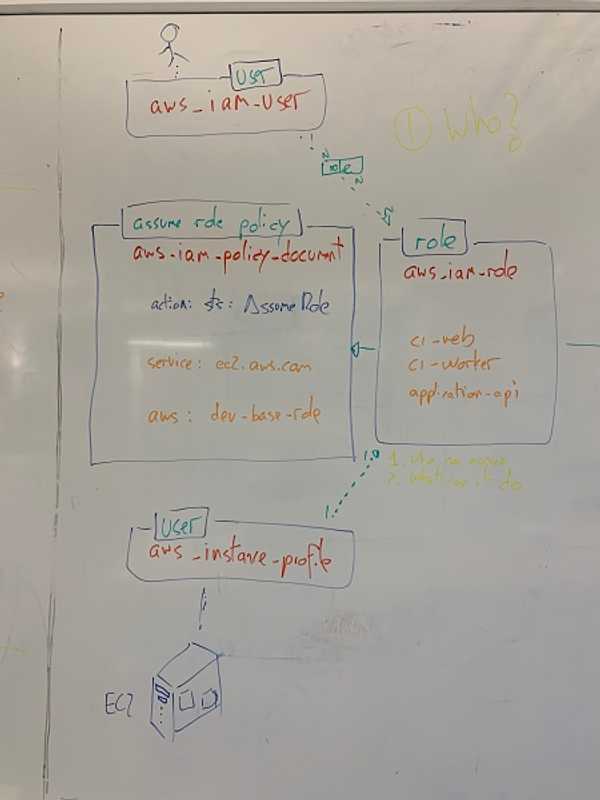 User
aws_iam-user
① Who?
role
assume role policy
aws-iam-policy-document
action: sts: AssumeRole
service: ec2.aws.com
aws: dev-base-role
role
aws_iam-role
ci-web
ci-worker
application-api
1.
2.
do
1.
User
aws_instave-profile
EC2